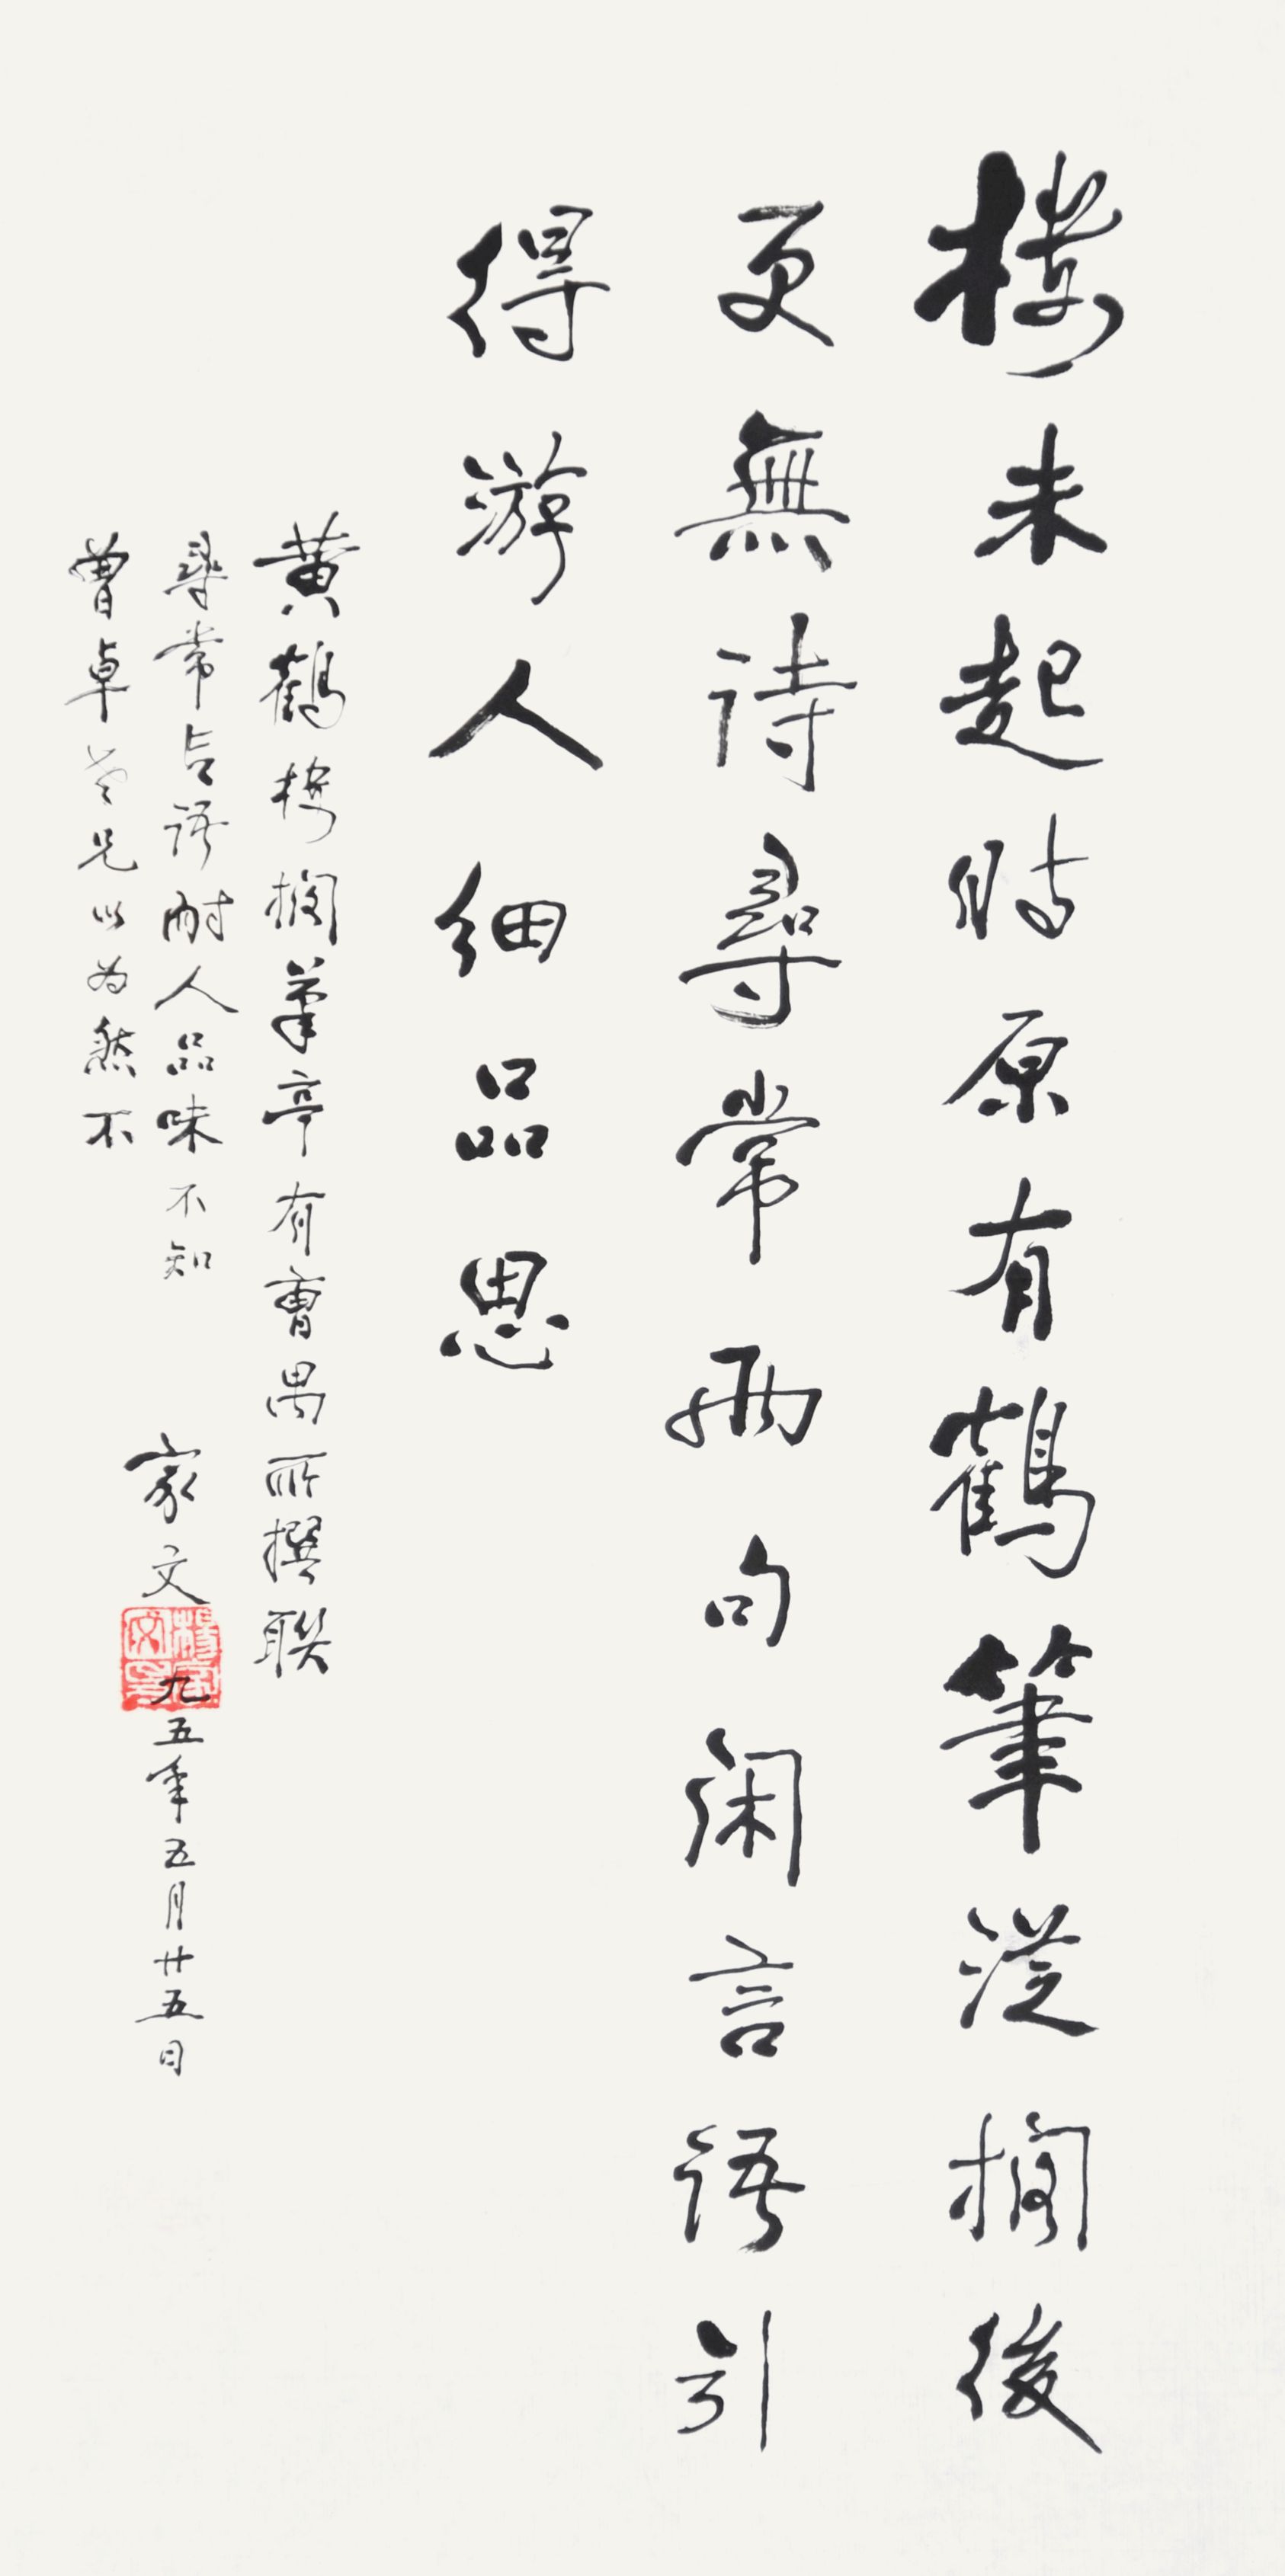 楼未起時原有鶴筆從擱後
更無詩尋常兩句閑言語引
得游人細品思
黄鶴楼擱筆亭有曹禺所撰聯
尋常言語耐人品味不知
曾卓老兄以为然不
家文
九五年五月廿五日